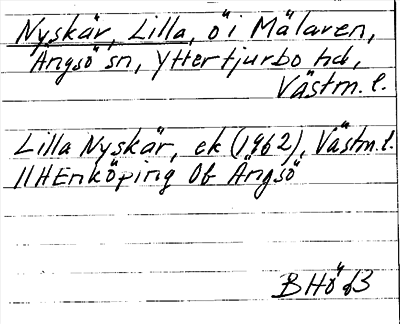 Nyskär, Lilla, ö i Mälaren,
Ängsö sn, Yttertjurbo hd,
Västm. l.
Lilla Nyskär, ek (1962), Västm. l.
11H Enköping Of Ängsö